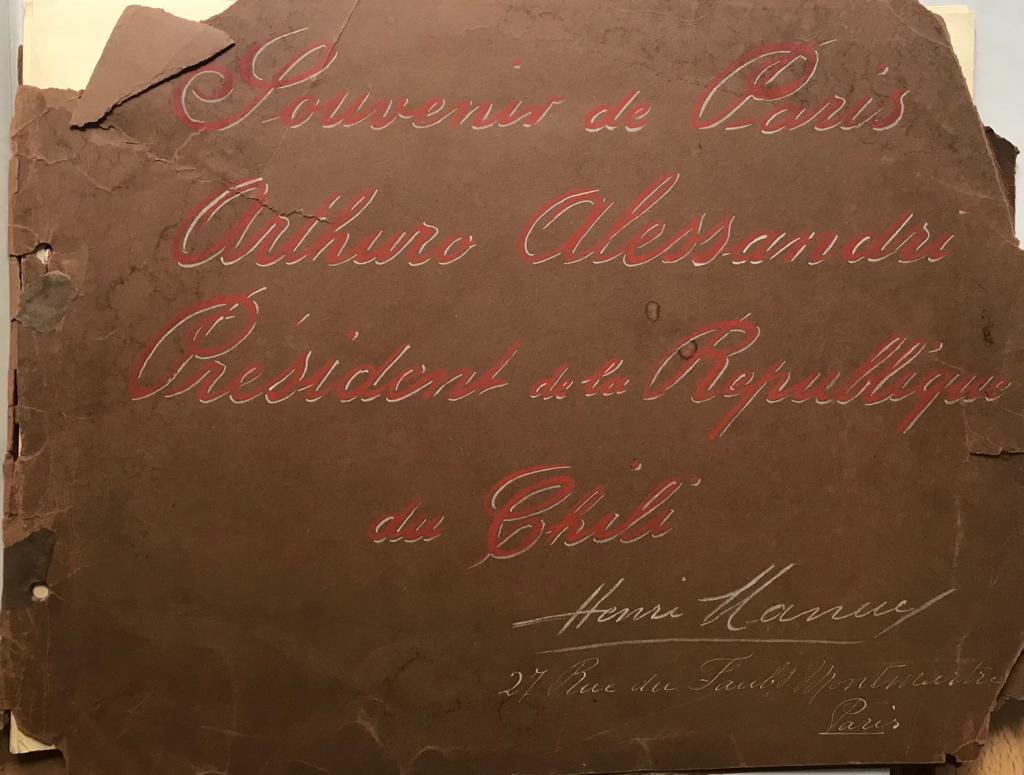 Souvenir de Paris
Arthuro Alessandri
Président de la Republique
du Chili
Henri Manuel
27 Rue du Faubg Montmartre
Paris